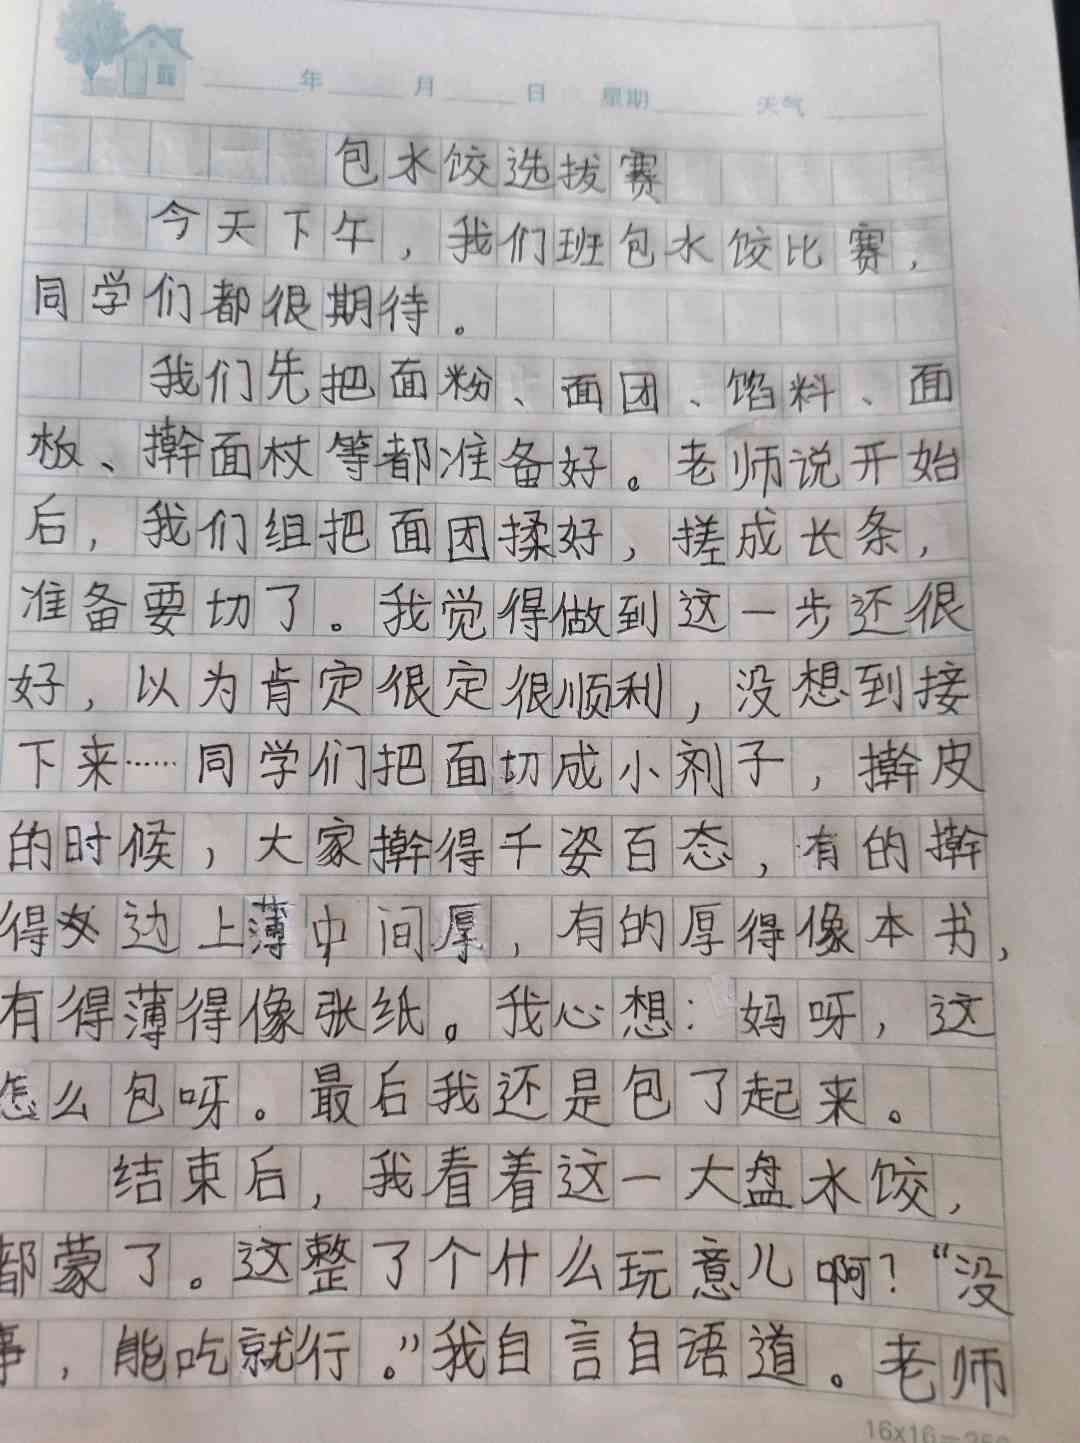 年 月 日 星期 天气
包水饺选拔赛
今天下午，我们班包水饺比赛，
同学们都很期待。
我们先把面粉、面团、馅料、面
板、擀面杖等都准备好。老师说开始
后，我们组把面团揉好，搓成长条，
准备要切了。我觉得做到这一步还很
好，以为肯定很定很顺利，没想到接
下来……同学们把面切成小剂子，擀皮
的时候，大家擀得千姿百态，有的擀
得边上薄中间厚，有的厚得像本书，
有得薄得像张纸。我心想：妈呀，这
怎么包呀。最后我还是包了起来。
结束后，我看着这一大盘水饺，
都蒙了。这整了个什么玩意儿啊？“没
事，能吃就行。”我自言自语道。老师
16x16=256